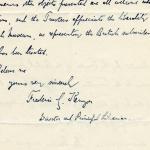 means the objects presented are all actions wh
tion, and the Trustees appreciate the liberality
Museum, as representing the British
has been
Believe me
yours very sincerely
Frederic G. Kenyon
Director and Principal Librarian